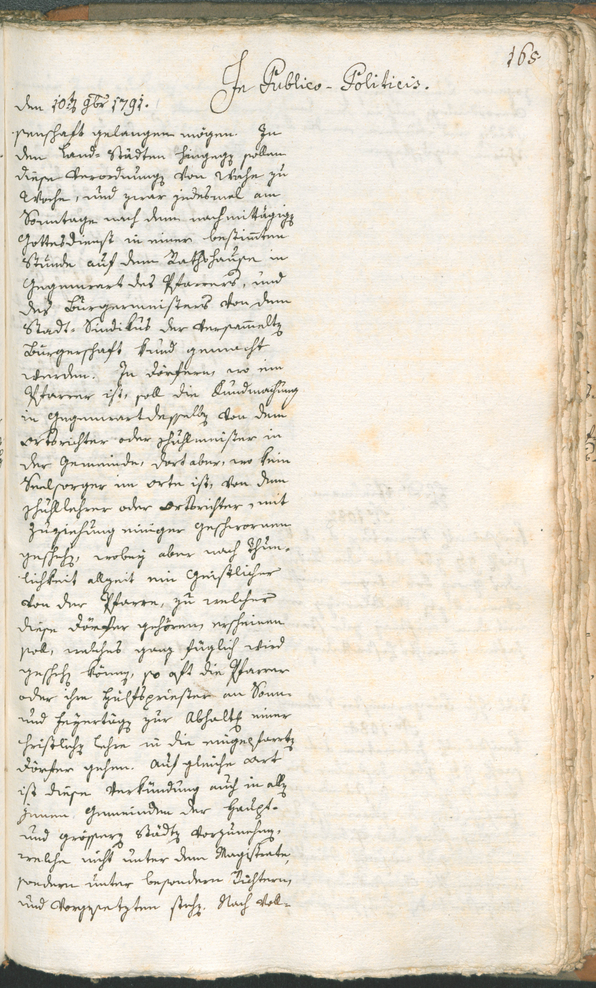 165
In Publico-Politicis.
den 10t 9br 1791.
senschaft gelangen mögen. In
den Land-Städten hingegen sollen
diese Verordnungen von Woche zu
Woche, und zwar jedesmal am
Sonntage nach dem nachmittägigen
Gottesdienst in einer bestimmten
Stunde auf dem Rathshause in
Gegenwart des Pfarrers, und
des Bürgermeisters von dem
Stadt-Sindikus der versammelten
Bürgerschaft kund gemacht
werden. In Dörfern, wo ein
Pfarrer ist, soll die Kundmachung
in Gegenwart desselben von dem
Ortsrichter oder Schullmeister in
der Gemeinde, dort aber, wo kein
Seelsorger im Orte ist, von dem
Schullehrer oder Ortsrichter mit
Zuziehung einiger Geschwornen
geschehen, wobey aber nach Thun-
lichkeit allzeit ein Geistlicher
von der Pfarre, zu welcher
diese Dörfer gehören, erscheinen
soll, welches ganz füglich wird
geschehen können, so oft die Pfarrer
oder ihre Hülfspriester an Sonn-
und Feyertägen zur Abhaltung einer
christlichen Lehre in die eingepfarrten
Dörfer gehen. Auf gleiche Art
ist diese Verkündung auch in allen
jenen Gemeinden der Haupt-
und grössern Städten vorzunehmen,
welche nicht unter dem Magistrate,
sondern unter besondern Richtern,
und Vorgesetzten stehen. Nach Vol-